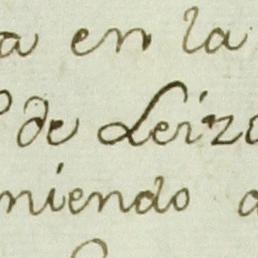 a en la
de Leiz
niendo a